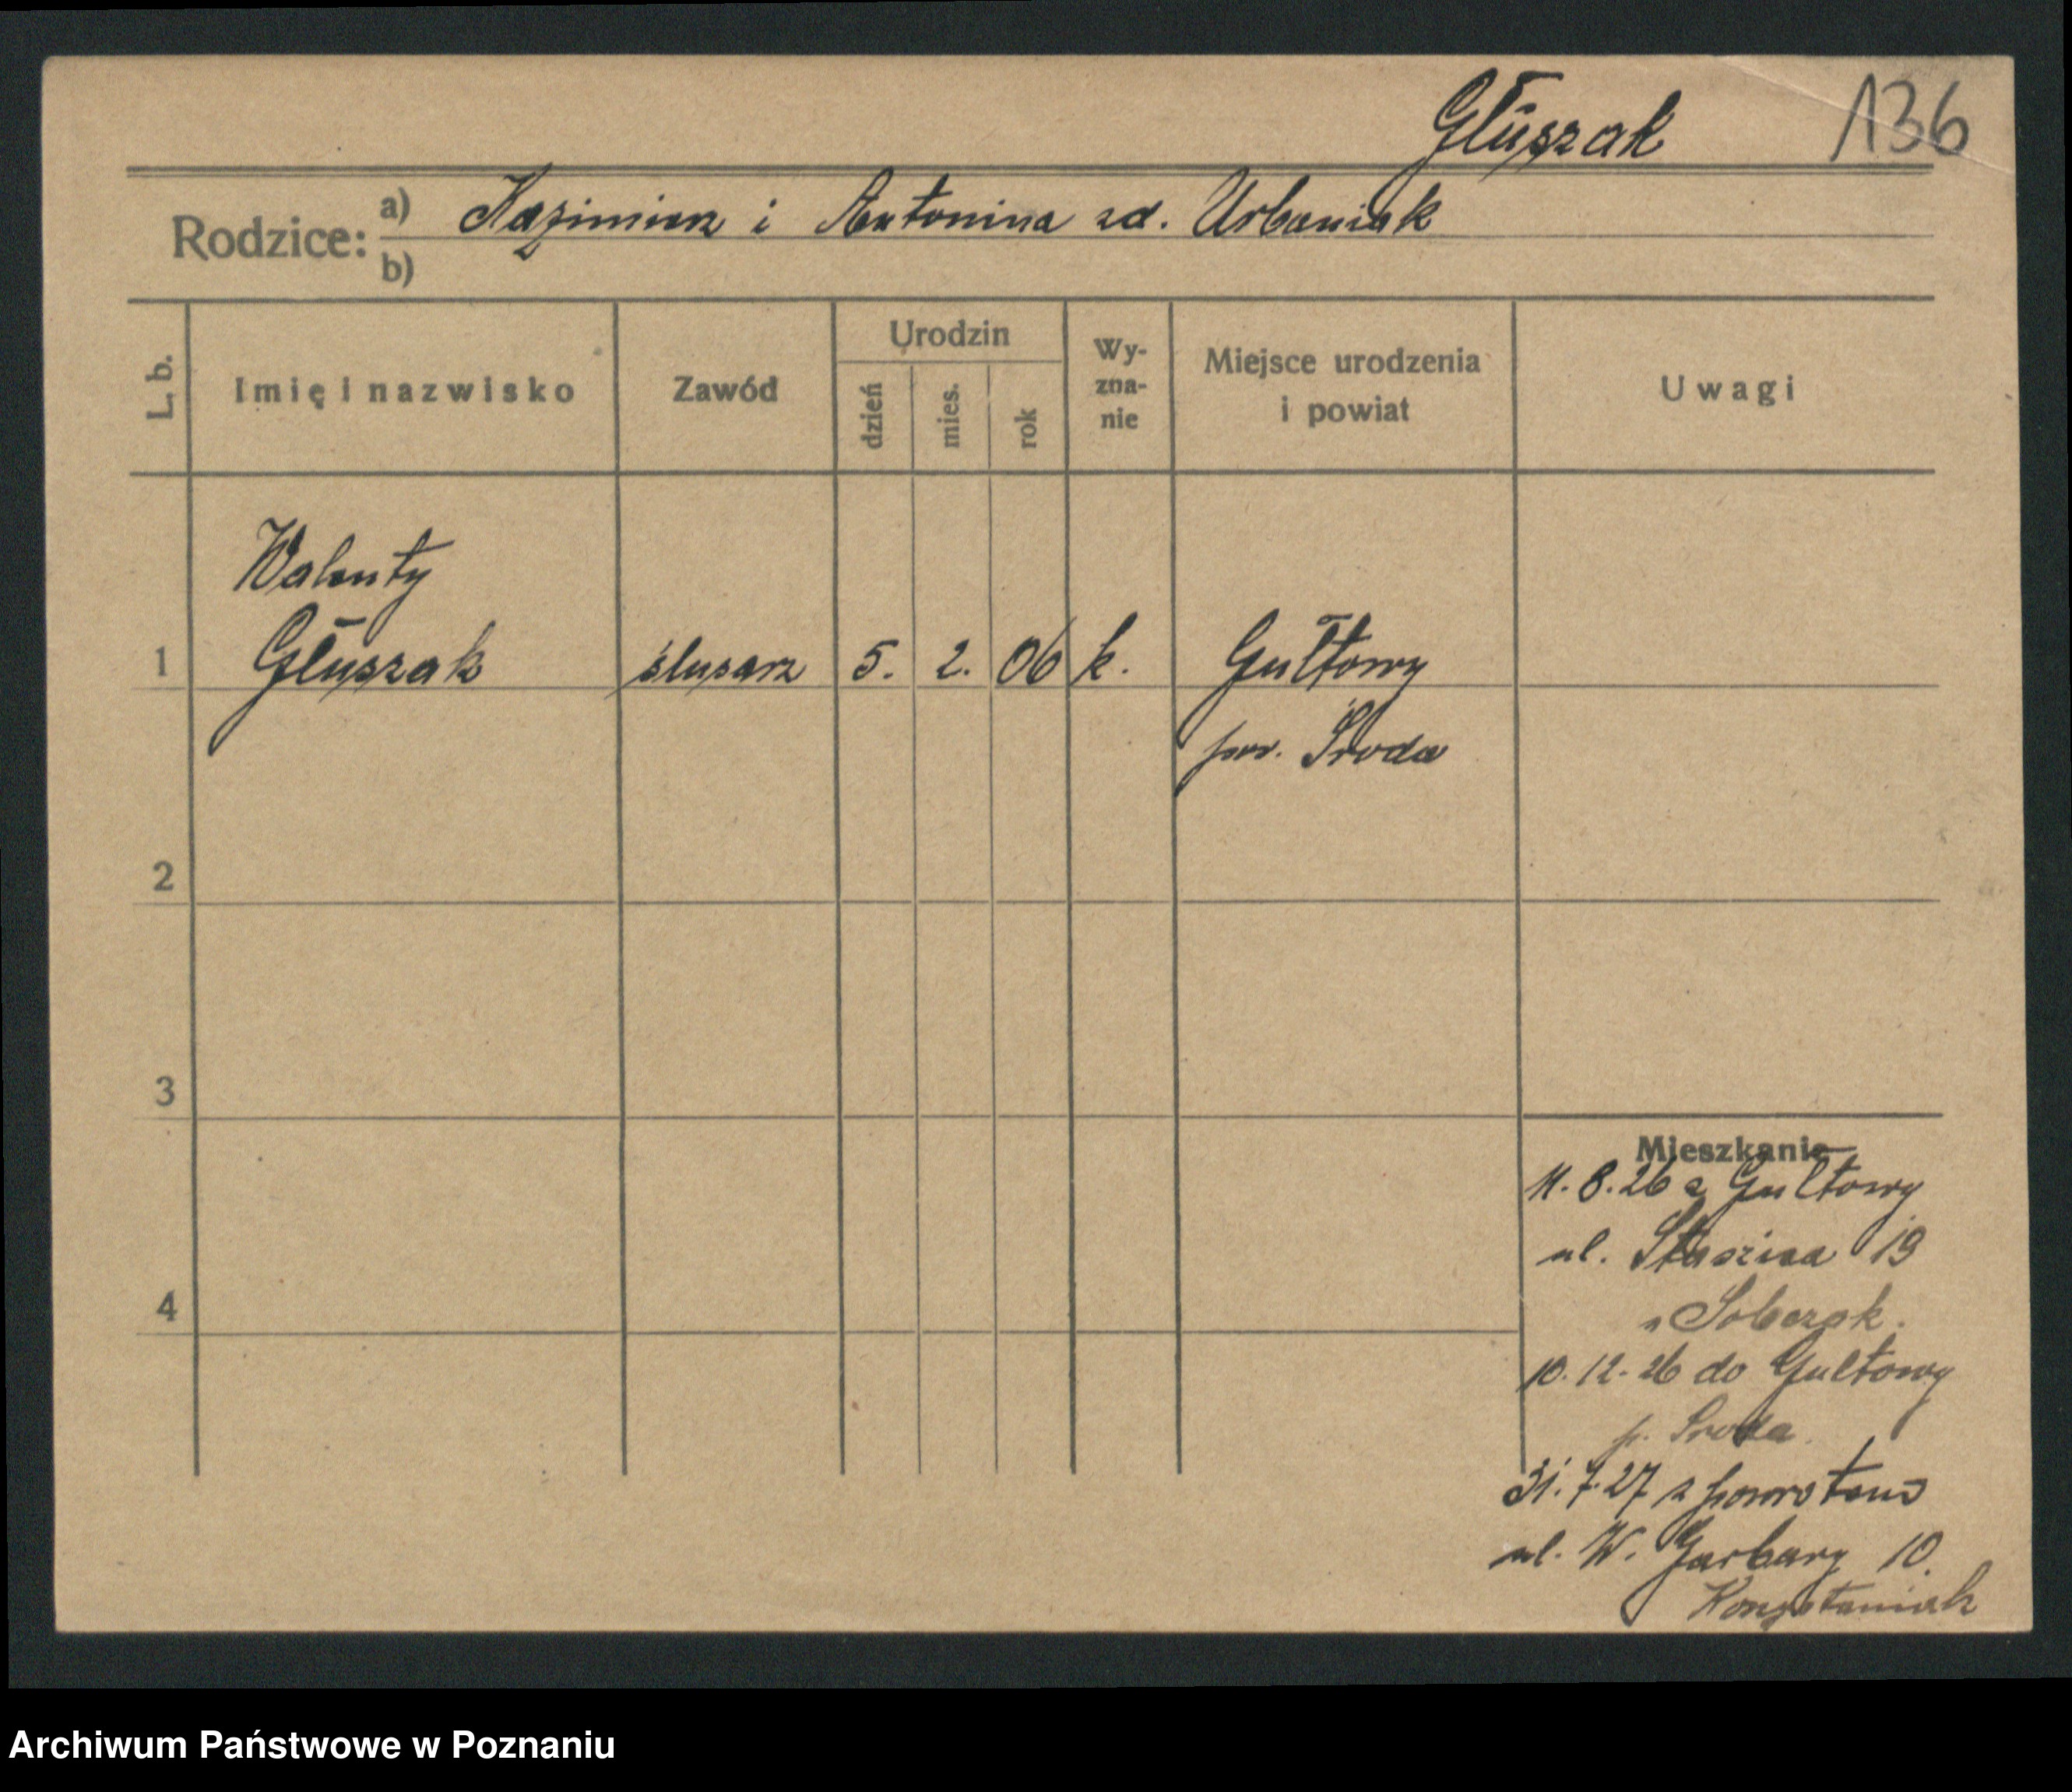 Głuszak 136
Rodzice: a) Kazimierz i Antonina zd. Urbaniak
b)
L. b. Imię i nazwisko Zawód Urodzin dzień mies. rok Wy-zna-nie Miejsce urodzenia i powiat Uwagi
Walenty
1 Głuszak ślusarz 5. 2. 06 k. Gułtowy
pow. Środa
2
3
Mieszkanie
11. 8. 26 z Gułtowy
ul. Staszica 19
4
u Sobczak.
10. 12. 26 do Gułtowy
p. Środa.
31. 7. 27 z powrotem
ul. W. Garbary 10.
Archiwum Państwowe w Poznaniu